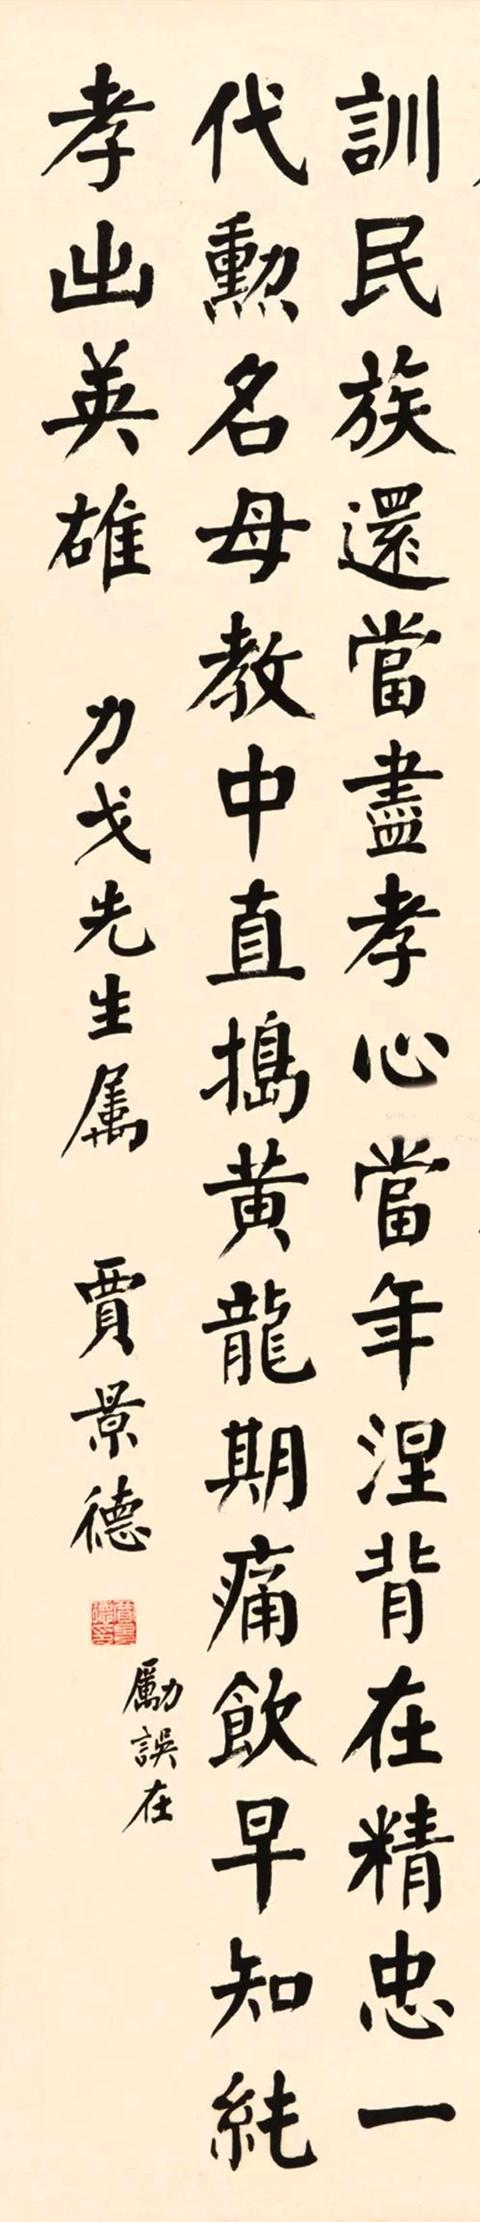 訓民族還當盡孝心當年涅背在精忠一
代勳名母教中直搗黃龍期痛飲早知純
孝出英雄
力戈先生属
賈景德
勵誤在